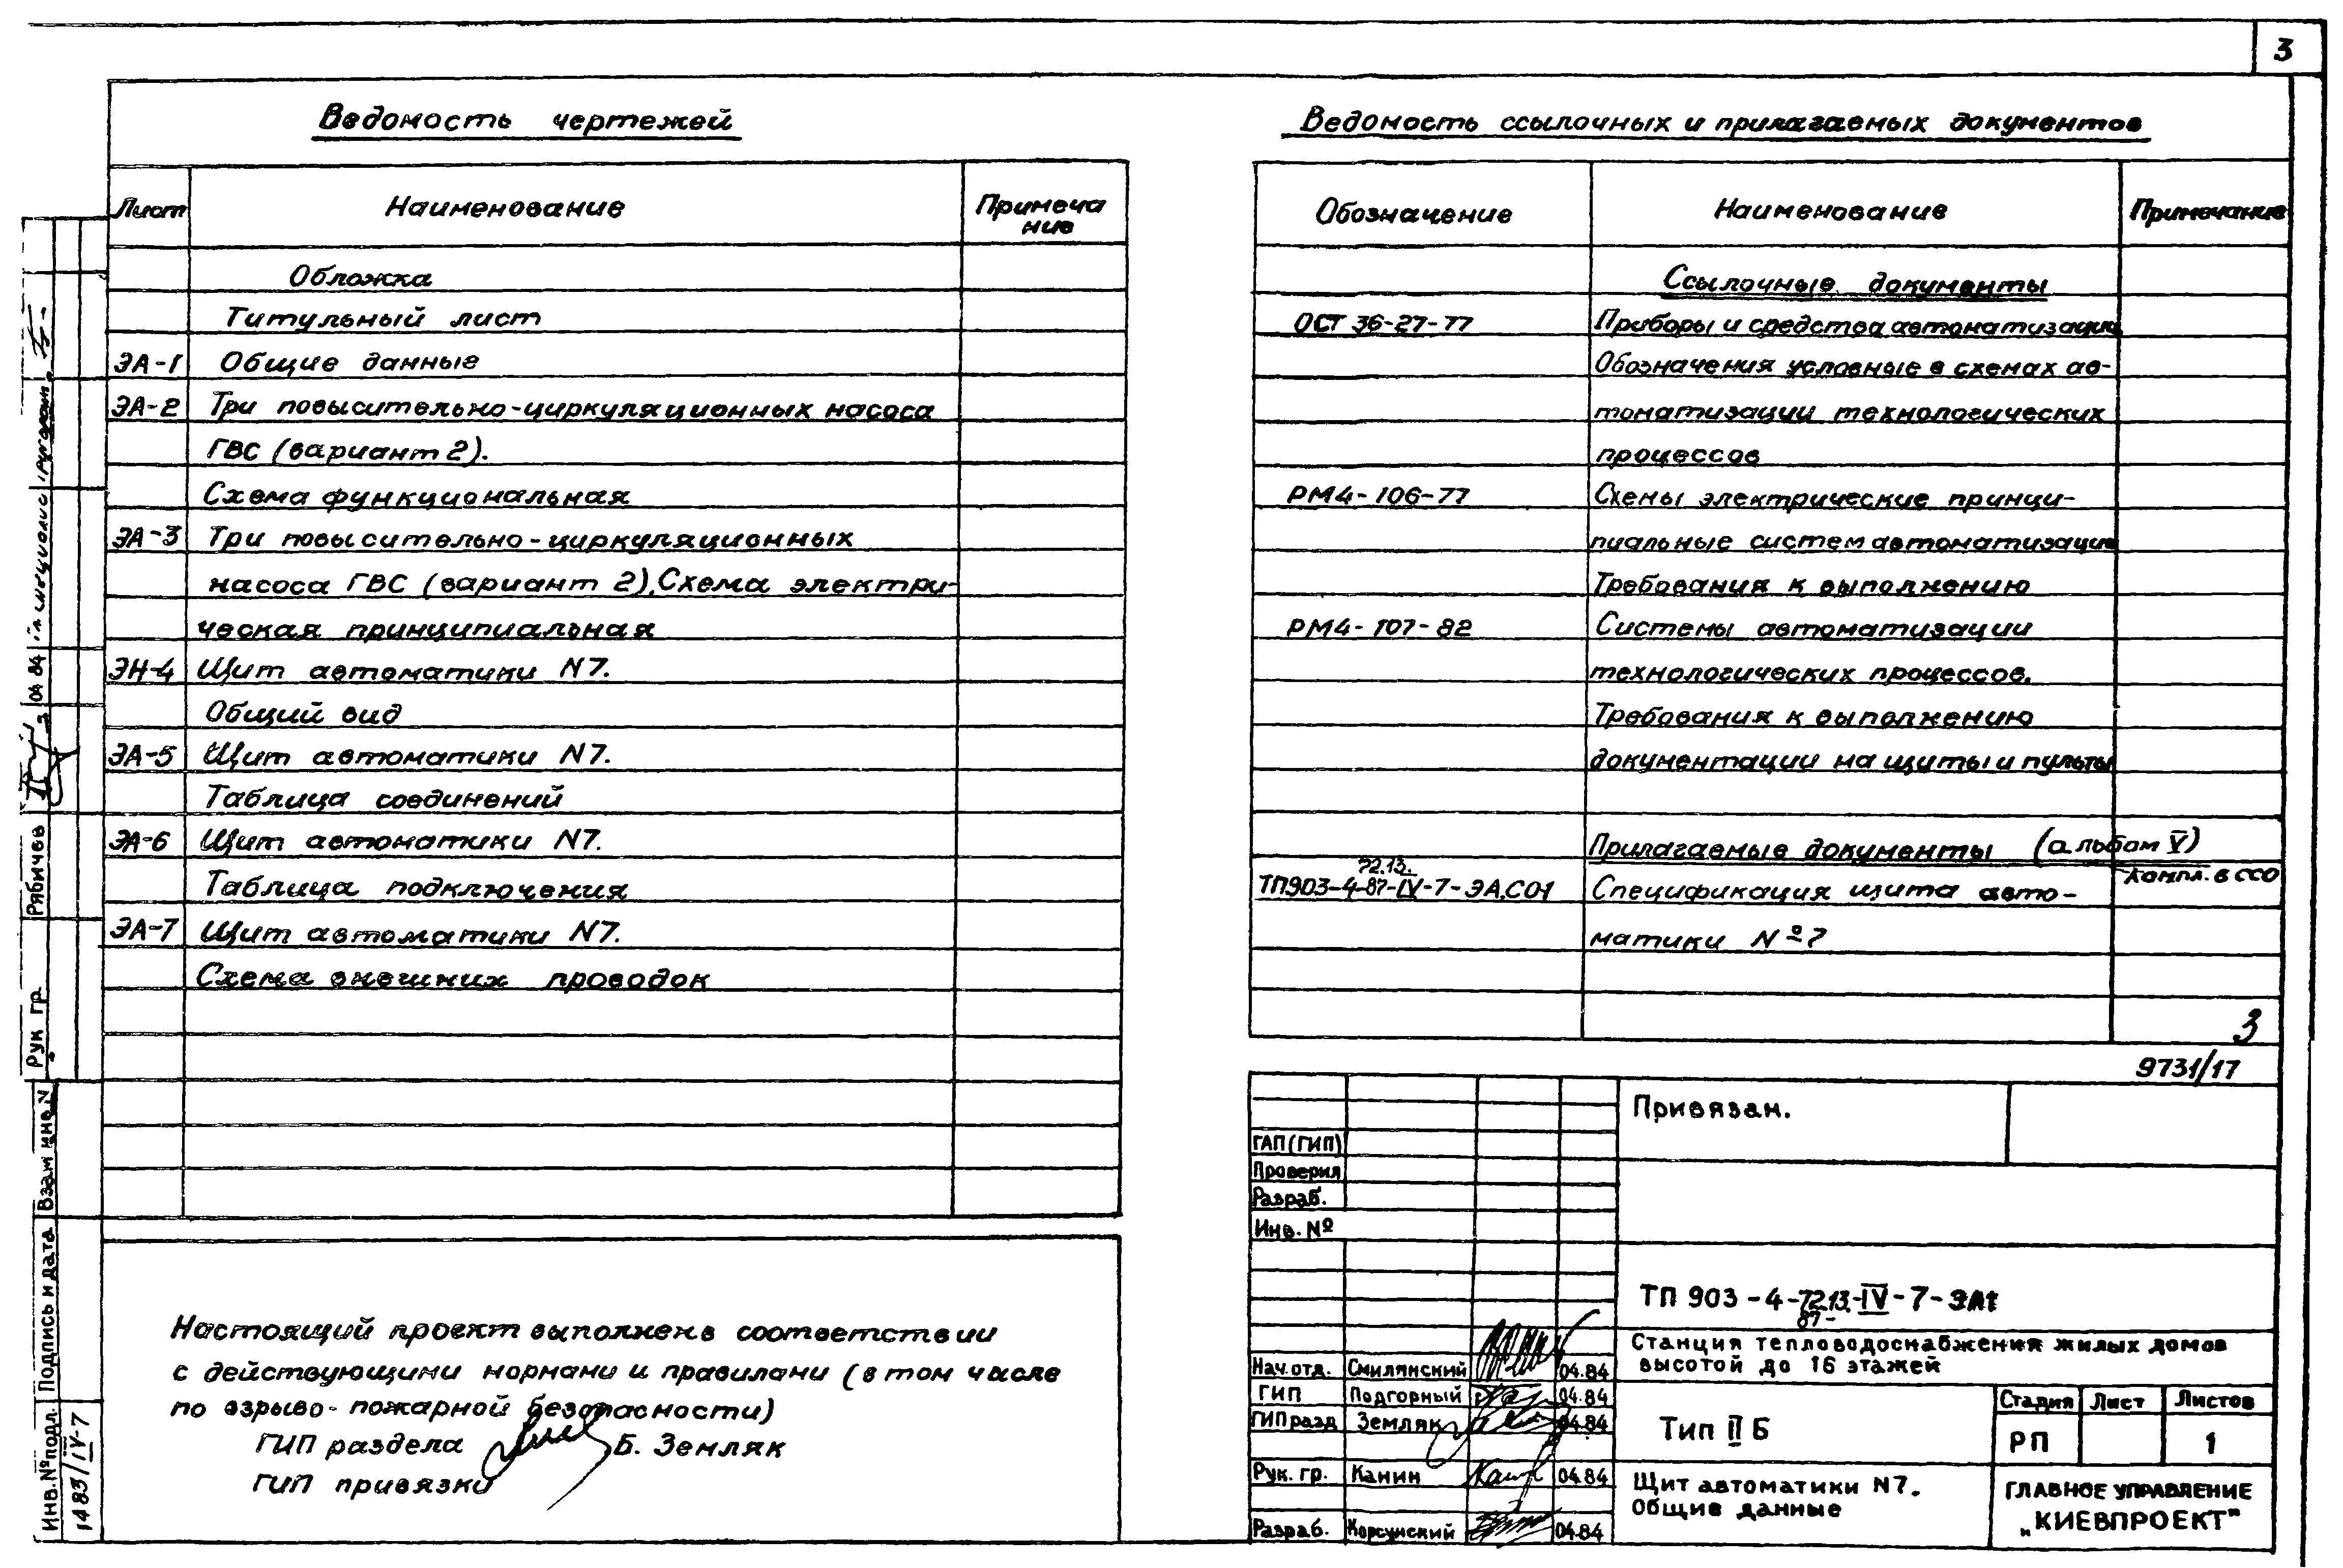 3
Ведомость чертежей
Лист Наименование Примеча
ние
Обложка
Титульный лист
ЭА-1 Общие данные
ЭА-2 Три повысительно-циркуляционных насоса
ГВС (вариант 2).
Схема функциональная
ЭА-3 Три повысительно-циркуляционных
насоса ГВС (вариант 2). Схема электри-
ческая принципиальная
ЭН-4 Щит автоматики N7.
Общий вид
ЭА-5 Щит автоматики N7.
Таблица соединений
ЭА-6 Щит автоматики N7.
Таблица подключения
ЭА-7 Щит автоматики N7.
Схема внешних проводок
Ведомость ссылочных и прилагаемых документов
Обозначение Наименование Примечание
Ссылочные документы
ОСТ 36-27-77 Приборы и средства автоматизации
Обозначения условные в схемах ав-
томатизации технологических
процессов
РМ4-106-77 Схемы электрические принци-
пиальные систем автоматизации
Требования к выполнению
РМ4-107-82 Системы автоматизации
технологических процессов.
Требования к выполнению
документации на щиты и пульты
Прилагаемые документы (альбом V)
72.13.
ТП903-4-87-IV-7-ЭА.СО1 Спецификация щита авто- компл. в ССО
матики №7
3
9731/17
Настоящий проект выполнен в соответствии
с действующими нормами и правилами (в том числе
по взрыво-пожарной безопасности)
ГИП раздела Б. Земляк
ГИП привязки
Привязан.
ГАП (ГИП)
Проверил
Разраб.
Инв. №
ТП 903-4-72.13.-IV-7-ЭА1
87-
Станция тепловодоснабжения жилых домов
высотой до 16 этажей
Нач. отд. Смилянский 04.84
ГИП Подгорный 04.84
ГИП разд Земляк 04.84
Рук. гр. Канин 04.84
Разраб. Корсунский 04.84
Тип II Б
Стадия Лист Листов
РП 1
Щит автоматики N7.
Общие данные
ГЛАВНОЕ УПРАВЛЕНИЕ
„КИЕВПРОЕКТ"
Рук гр. Рябичев 04 84
Инв. № подл. Подпись и дата Взам инв. N
1483/IV-7